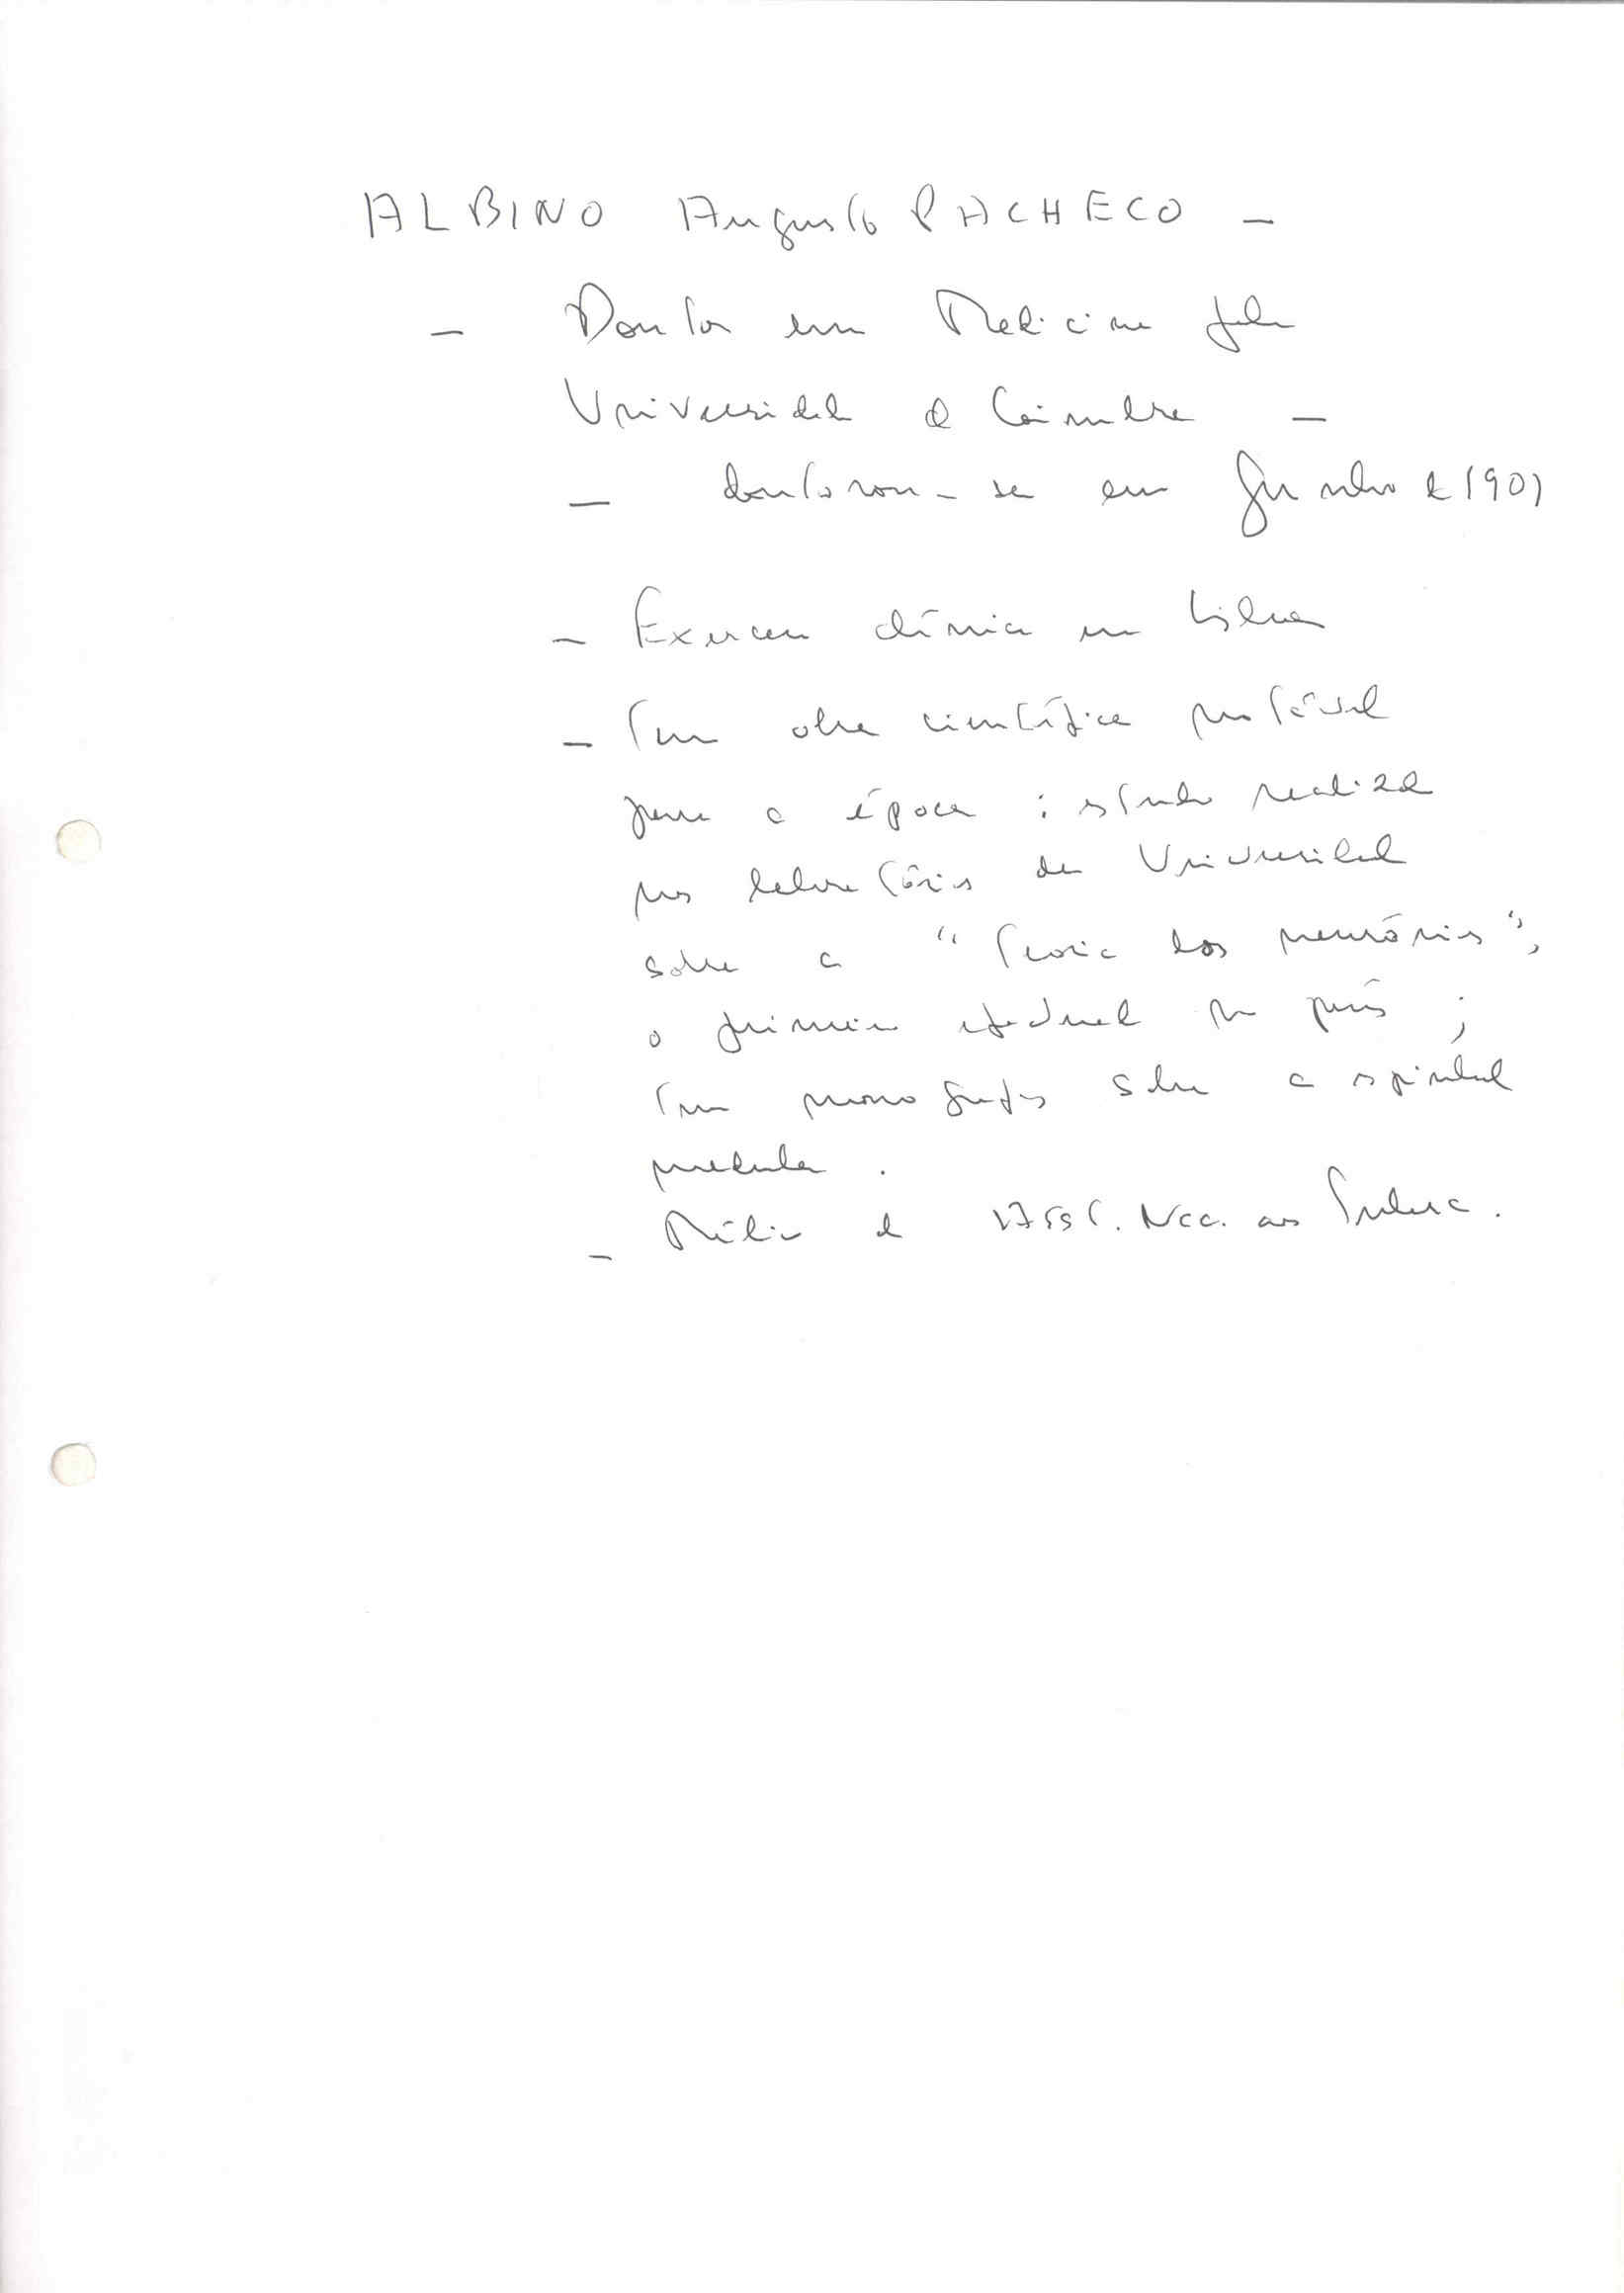 ALBINO Augusto PACHECO -
- Doutor em Medicina pela
Universidade de Coimbra -
- doutorou-se em Junho de 1901
- Exerceu clínica em Lisboa
- Tem obra científica notável
para a época : estudo realizado
nos laboratórios da Universidade
sobre a "Teoria dos neurónios",
o primeiro efectuado no país ;
tem monografias sobre a espiral
medula .
- Médico da Asst. Nac. aos Tuberc.